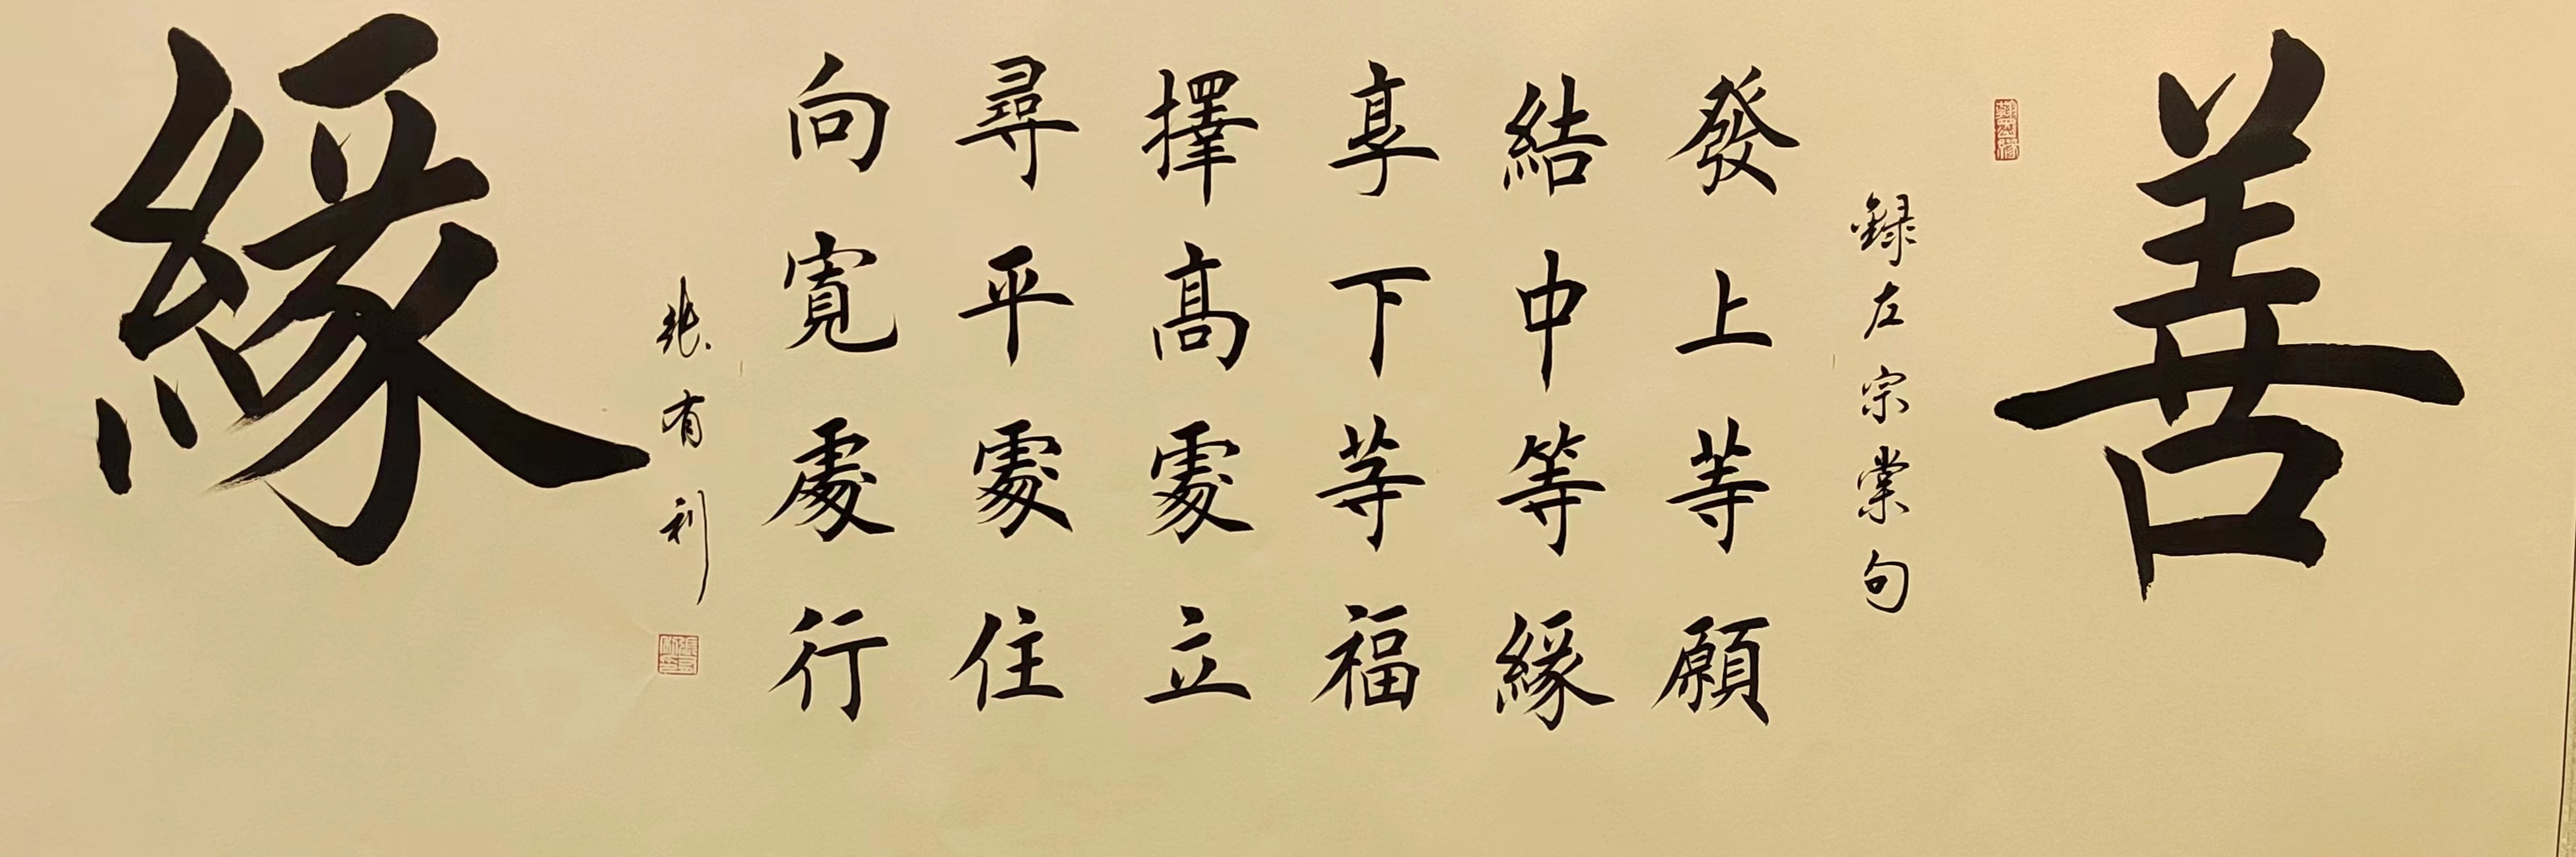 善
録左宗棠句
發上等願
結中等緣
享下等福
擇高處立
尋平處住
向寬處行
張有利
緣